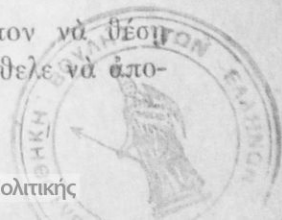 τον νὰ θέσῃ
θελε νὰ ἀπο-
ΘΗΚΗ ΒΟΥΛΗΣ ΤΩΝ ΕΛΛΗΝΩΝ
ολιτικής